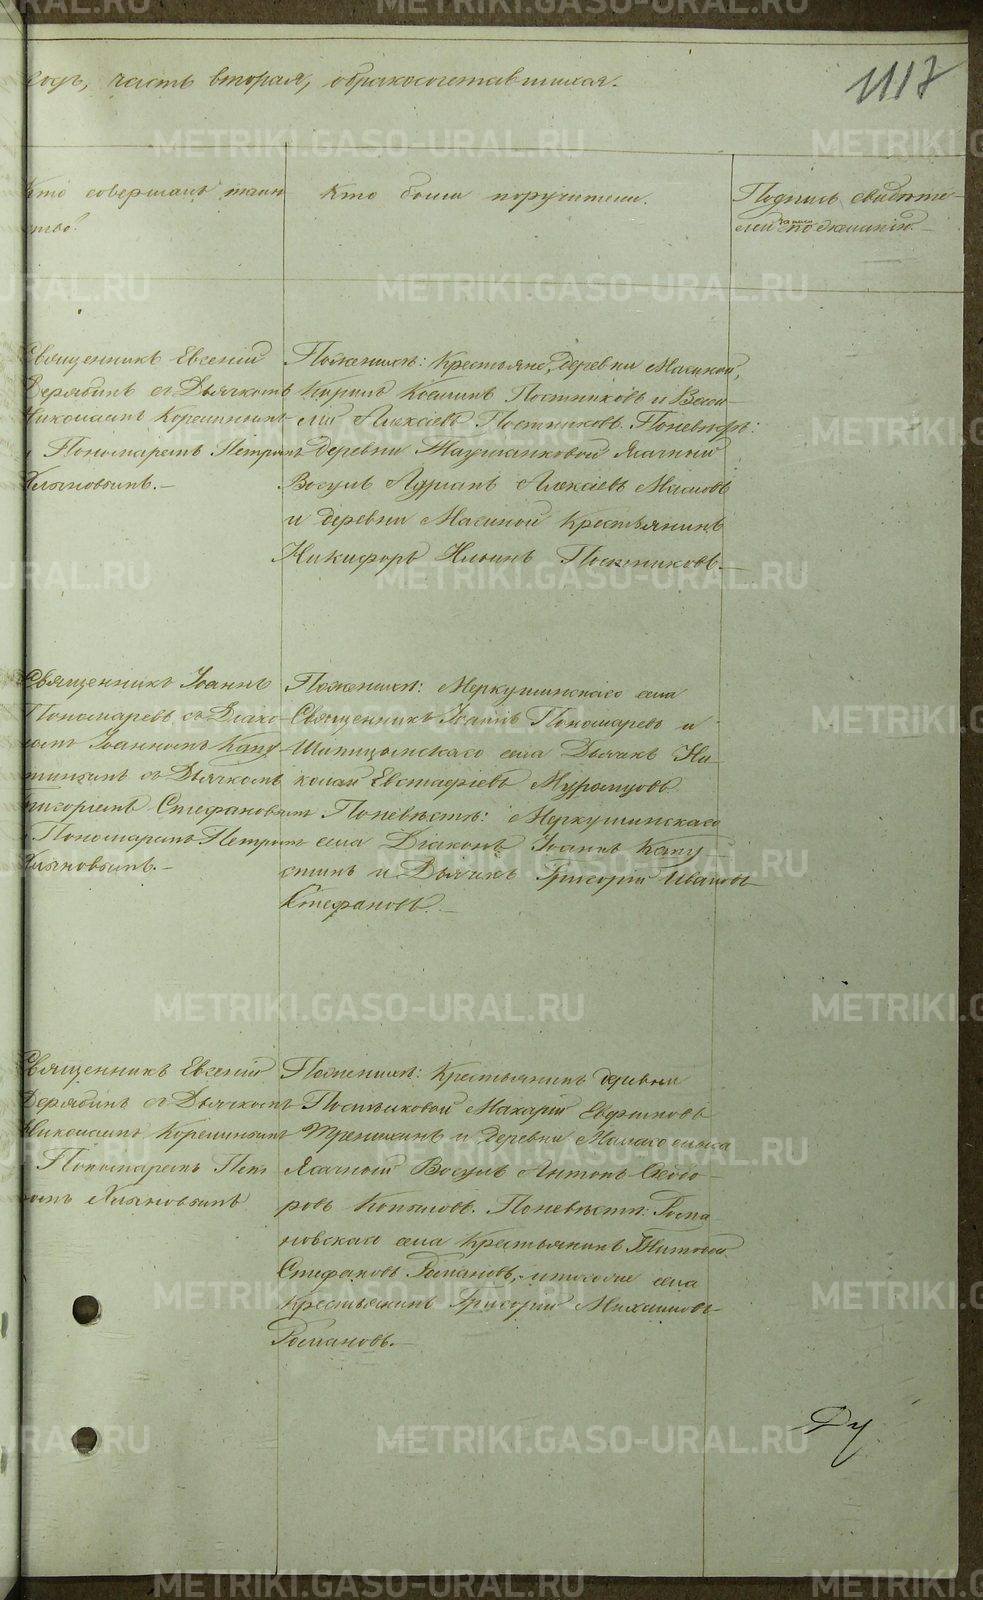 годъ, часть вторая, обракосочетавшихся.
1117
Кто совершалъ таин
ство.
Кто были поручители.
Подпись свидѣте-
лей записи по желанію.
Священникъ Евгеній
Дерябинъ съ Дьячкомъ
Николаемъ
и Пономаремъ Петромъ
Хлыновымъ.-
Поженихѣ: Крестьяне, деревни Масиной,
Кирилъ Козминъ Постниковъ и Васи-
лій Алексѣевъ Постниковъ. Поневѣстѣ:
деревни Ясачный
Адріанъ Алексѣевъ Масловъ
и деревни Масиной Крестьянинъ
Никифоръ Ильинъ Постниковъ.-
Священникъ Іоаннъ
Пономаревъ съ Діако-
номъ Іоанномъ Капу
стинымъ съ Дьячкомъ
Григоріемъ Стефановымъ
и Пономаремъ Петромъ
Хлыновымъ.-
Поженихѣ: Меркушинскаго села
Священникъ Іоаннъ Пономаревъ и
Шипицынскаго села Дьячекъ Ни-
колай Евстафіевъ Мурзинцовъ
Поневѣстѣ: Меркушинскаго
села Діаконъ Іоаннъ Капу
стинъ и Дьячекъ Григорій Ивановъ
Стефановъ.-
Священникъ Евгеній
Дерябинъ съ Дьячкомъ
Николаемъ
Пономаремъ Пет
ромъ Хлыновымъ
Поженихѣ: Крестьянинъ деревни
Постниковой Макарій Евфимовъ
и деревни
Ясачный Антонъ Ѳедо-
ровъ Копыловъ. Поневѣстѣ: Рома
новскаго села Крестьянинъ
Стефановъ Романовъ, и тогоже села
Крестьянинъ Григорій Михаиловъ
Романовъ.-
METRIKI.GASO-URAL.RU